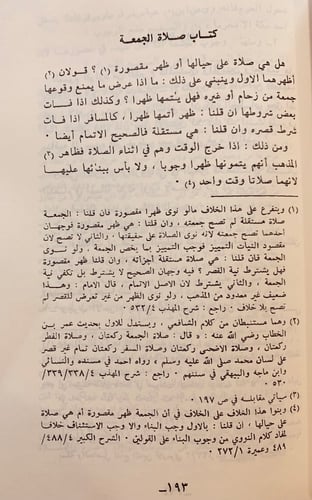 كتاب صلاة الجمعة
هل هي صلاة على حيالها أو ظهر مقصورة (١) ؟ قولان (٢)
أظهرهما الاول وينبني على ذلك : ما اذا عرض ما يمنع وقوعها
جمعة من زحام أو غيره فهل يتمها ظهرا ؟ وكذلك اذا فات
بعض شروطها ان قلنا : ظهر أتمها ظهرا ، كالمسافر اذا فات
شرط قصره وان قلنا : هي مستقلة فالصحيح الاتمام أيضا ٠
ومن ذلك : اذا خرج الوقت وهم في اثناء الصلاة فظاهر (٣)
المذهب أنهم يتمونها ظهرا وجوبا ، ولا بأس ببنائها عليها
لانهما صلاتا وقت واحد (٤)
(١) ويتفرع على هذا الخلاف مالو نوى ظهرا مقصورة فان قلنا : الجمعة
صلاة مستقلة لم تصح جمعته ، وان قلنا : هي ظهر مقصورة فوجهان
احدهما تصح جمعته لانه نوى الصلاة على حقيقتها ، والثاني لا تصح لان
مقصود النيات التمييز فوجب التمييز بما يخص الجمعة ، ولو نوى
الجمعة فان قلنا : هي صلاة مستقلة اجزأته ، وان قلنا ظهر مقصورة
فهل يشترط نية القصر ؟ فيه وجهان الصحيح لا يشترط بل تكفي نية
الجمعة ، والثاني يشترط لان الاصل الاتمام ، قال الامام : وهذا
ضعيف غير معدود من المذهب ، ولو نوى الظهر من غير تعرض للقصر لم
تصح بلا خلاف ٠ راجع : شرح المهذب ٥٣٢/٤
(٢) وهما مستنبطان من كلام الشافعي ، ويستدل للاول بحديث عمر بن
الخطاب رضي الله عنه : « صلاة الجمعة ركعتان ، وصلاة الفطر
ركعتان ، وصلاة الاضحى ركعتان وصلاة السفر ركعتان تمام غير قصر
على لسان محمد صلى الله عليه وسلم ، رواه احمد في مسنده والنسائي
وابن ماجه والبيهقي في سننهم ٠ راجع : شرح المهذب ٣٣٩/٣٣٨/٤
٥٣٠ ٠
(٣) سيأتي مقابله في ص ١٩٧ ٠
(٤) وبنوا هذا الخلاف على الخلاف في ان الجمعة ظهر مقصورة ام هي صلاة
على حيالها ، ان قلنا : بالاول وجب البناء والا وجب الاستئناف خلافا
لمفاد كلام النووي من وجوب البناء على القولين ٠ الشرح الكبير ٤٨٨/٤
٤٨٩ وعميرة ٢٧٢/١ ٠
ــ١٩٣ــ